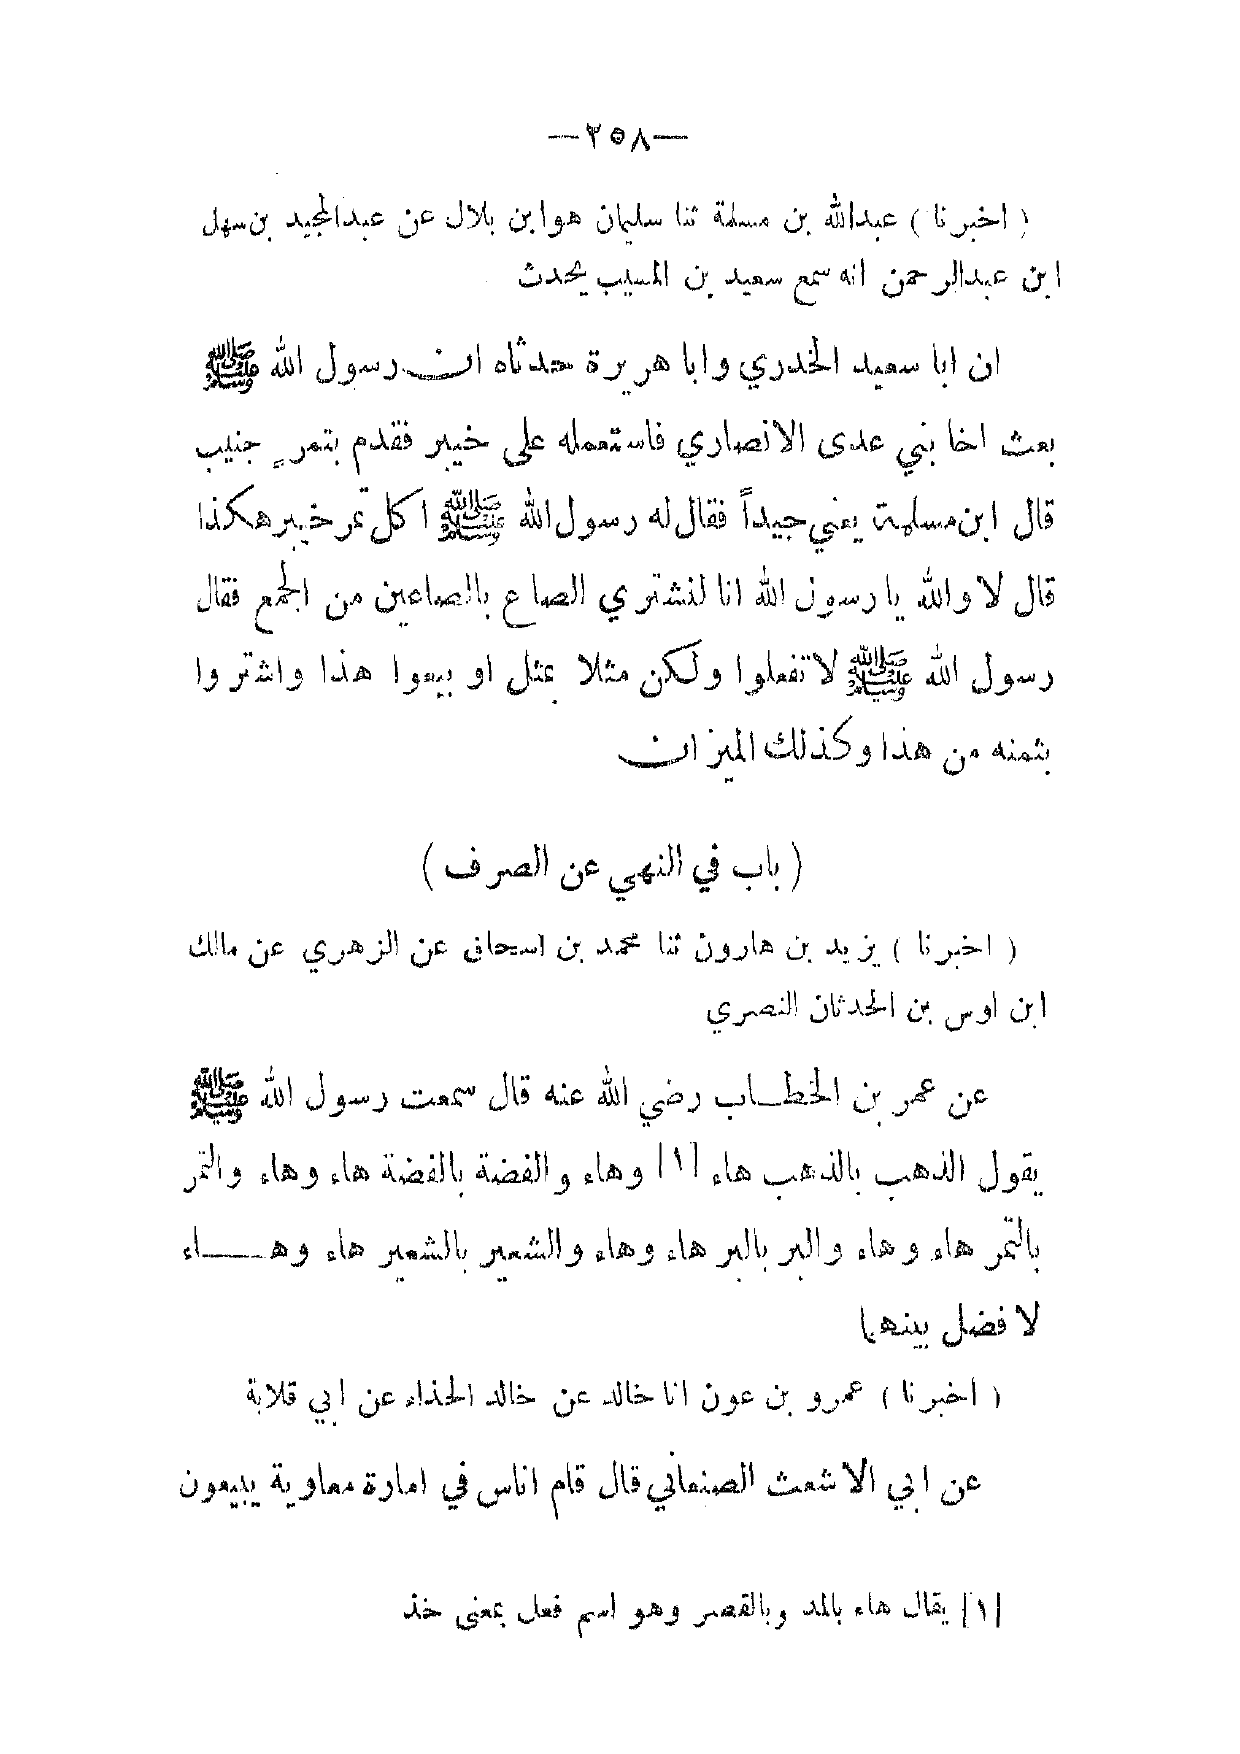 —٢٥٨—
( اخبرنا ) عبدالله بن مسلمة ثنا سليمان هوابن بلال عن عبدالمجيد بن سهل
ابن عبدالرحمن انه سمع سعيد بن المسيب يحدث
ان ابا سعيد الخدري وابا هريرة حدثاه ان رسول الله ﷺ
بعث اخا بني عدى الانصاري فاستعمله على خيبر فقدم بتمرٍ جنيب
قال ابن مسلمة يعني جيداً فقال له رسول الله ﷺ اكل تمر خيبر هكذا
قال لا والله يا رسول الله انا لنشتري الصاع بالصاعين من الجمع فقال
رسول الله ﷺ لا تفعلوا ولكن مثلا بمثل او بيعوا هذا واشتروا
بثمنه من هذا وكذلك الميزان
( باب في النهي عن الصرف )
( اخبرنا ) يزيد بن هارون ثنا محمد بن اسحاق عن الزهري عن مالك
ابن اوس بن الحدثان النصري
عن عمر بن الخطاب رضي الله عنه قال سمعت رسول الله ﷺ
يقول الذهب بالذهب هاء [١] وهاء والفضة بالفضة هاء وهاء والتمر
بالتمر هاء وهاء والبر بالبر هاء وهاء والشعير بالشعير هاء وهاء
لا فضل بينهما
( أخبرنا ) عمرو بن عون انا خالد عن خالد الحذاء عن ابي قلابة
عن ابي الاشعث الصنعاني قال قام اناس في امارة معاوية يبيعون
[١] يقال هاء بالمد وبالقصر وهو اسم فعل بمعنى خذ